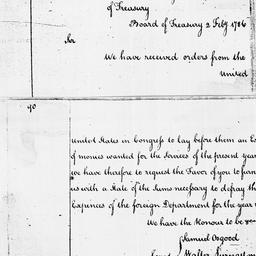 of Treasury
Board of Treasury 2 Feby. 1786
Sir
We have received orders from the
United
90
United States in Congress to lay before them an Es
of monies wanted for the Services of the present year
we have therefore to request the Favor of you to fur
us with a State of the Sums necessary to defray th
Expences of the foreign Department for the year
We have the Honour to be &c
Samuel Osgood
Walter Livingston